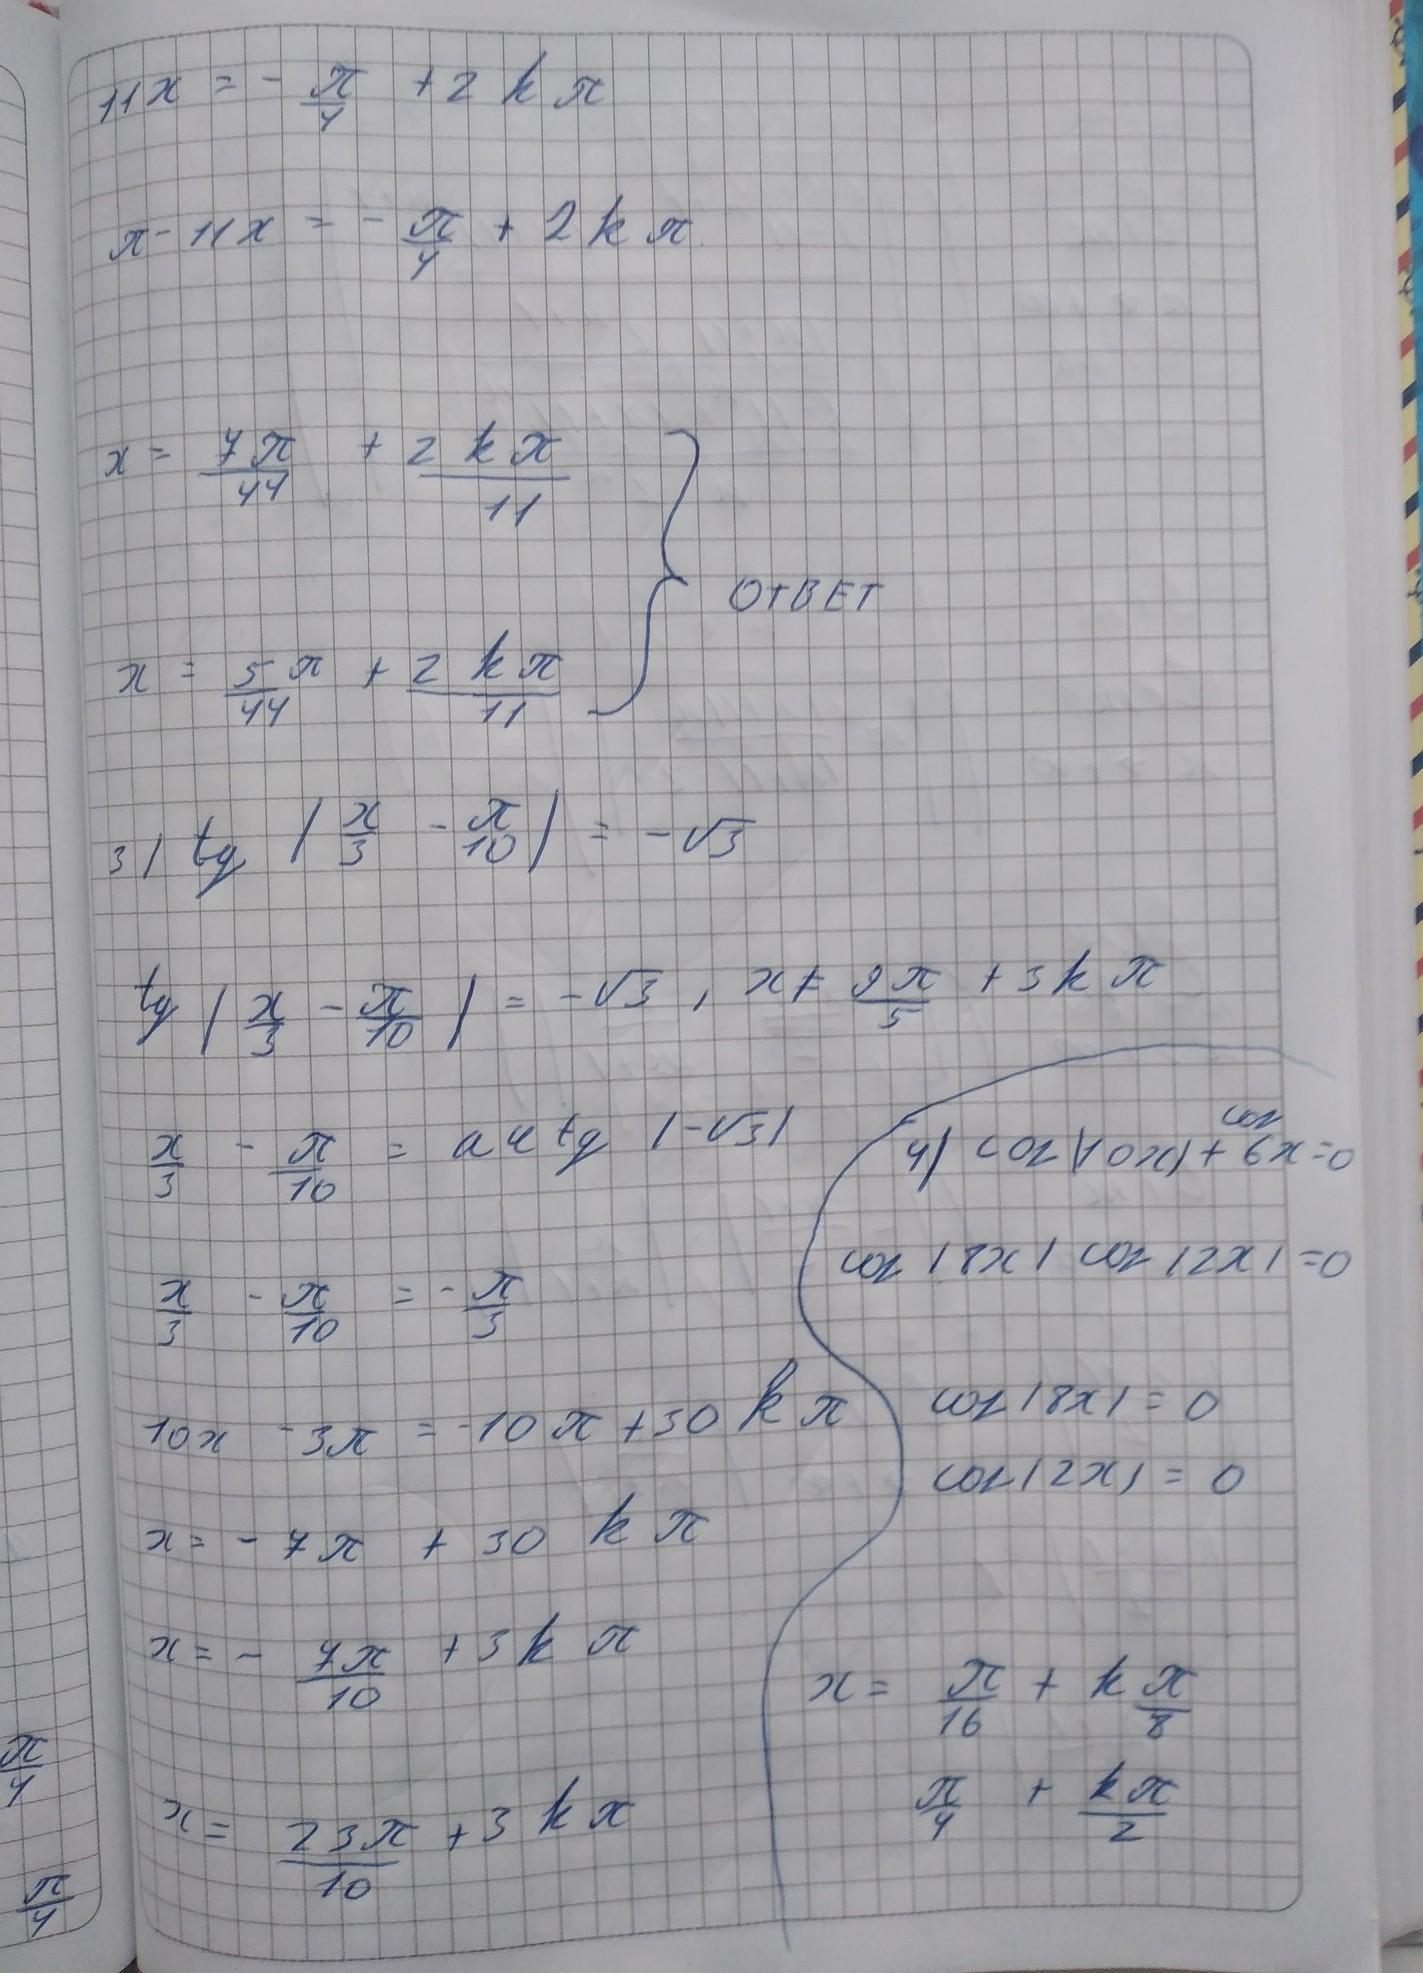 11x = - π/4 + 2 k π
π - 11x = - π/4 + 2 k π
x = 7π/44 + 2 k π/11
x = 5π/44 + 2 k π/11
ОТВЕТ
3) tg (x/3 - π/10) = -√3
tg (x/3 - π/10) = -√3, x ≠ 9π/5 + 3 k π
x/3 - π/10 = arctg (-√3)
x/3 - π/10 = - π/3
10x - 3π = -10π + 30 k π
x = - 7π + 30 k π
x = - 7π/10 + 3 k π
x = 23π/10 + 3 k π
4) cos(10x) + cos 6x = 0
cos(8x) cos(2x) = 0
cos(8x) = 0
cos(2x) = 0
x = π/16 + k π/8
π/4 + kπ/2
π/4
π/4